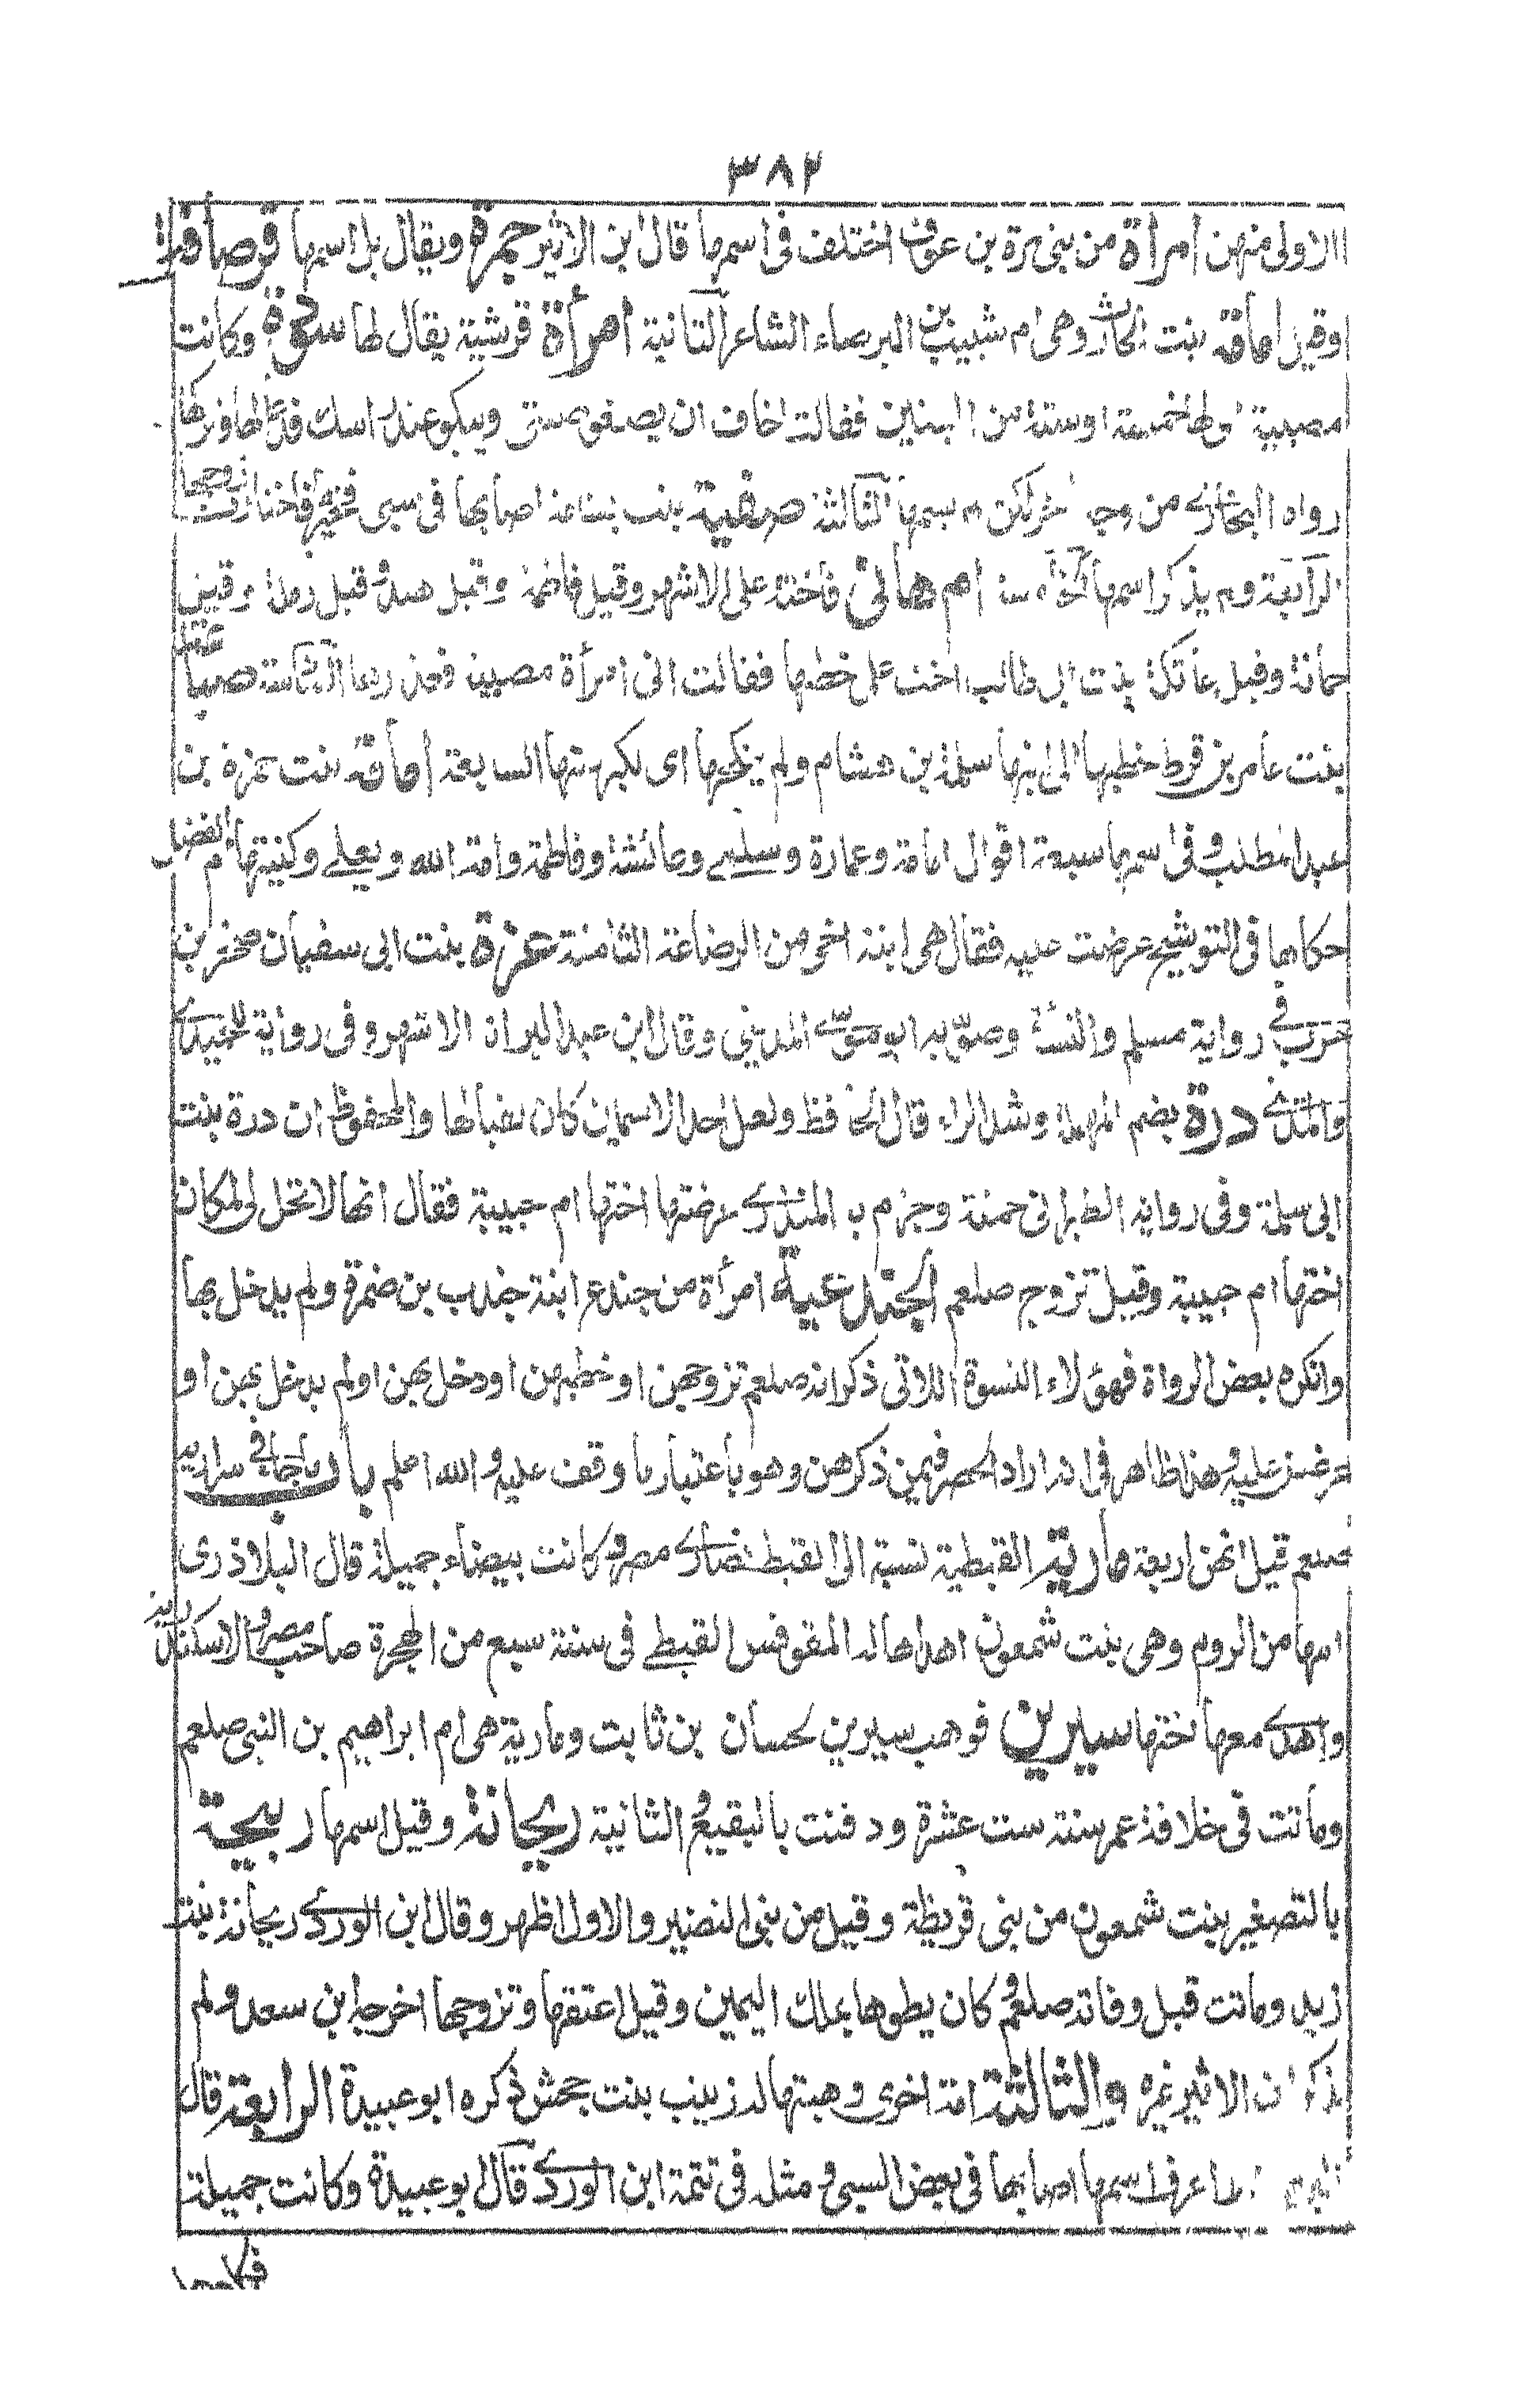 ٣٨٢
الاولى منهن امرأة من بنى مرة بن عوف اختلف فى اسمها قال ابن الاثير جمرة ويقال بل اسمها قرصافة
وقيل امامة بنت الحارث وهى ام شبيب بن البرصاء الشاعر الثانية امرأة قرشية يقال لها سودة وكانت
مصبية لها خمسة او ستة من البنين فقالت اخاف ان عند راسك
رواه البخارى من وجه لكن لم يسمها الثالثة صفية بنت بشامة اصابها فى سبى فخيرها فاختارت زوجها
الرابعة ولم يذكر اسمها الخامسة ام هانئ فاختة على الاشهر وقيل فاطمة وقيل هند وقيل رملة وقيل
جمانة وقيل عاتكة بنت ابى طالب اخت على خطبها فقالت انى امرأة مصبية السادسة ضباعة
بنت عامر بن قرط خطبها الى ابنها سلمة بن هشام ولم ينكحها اى لكبر سنها السابعة امامة بنت حمزة بن
عبد المطلب وفى اسمها سبعة اقوال امامة وعمارة وسلمى وعائشة وفاطمة وامة الله ويعلى وكنيتها ام الفضل
حكاها فى التوشيح عرضت عليه فقال هى ابنة اخى من الرضاعة الثامنة عزة بنت ابى سفيان صخر بن
حرب فى رواية مسلم والنسائى وصوبه ابو موسى المدينى وقال ابن عبد البر انه الاشهر وفى رواية للحميدى
درة بضم المهملة وشد الراء قال الحافظ ولعل احد الاسمين كان لقبا لها والمحفوظ ان درة بنت
ابى سلمة وفى رواية الطبرانى حمنة وجزم به المنذرى عرضتها اختها ام حبيبة فقال انها لا تحل لى لمكان
اختها ام حبيبة وقيل تزوج صلعم الجندعية امرأة من جندع ابنة جندب بن ضمرة ولم يدخل بها
وانكره بعض الرواة فهؤلاء النسوة اللاتى ذكر انه صلعم تزوجهن او خطبهن او دخل بهن او لم يدخل بهن او
عرضن عليه وهذا ظاهر فى انه اراد الحصر فيمن ذكرهن وهو باعتبار ما وقف عليه والله اعلم باب ما جاء فى سراريه
صلعم قيل انهن اربعة مارية القبطية نسبة الى القبط نصارى مصر وكانت بيضاء جميلة قال البلاذرى
امها من الروم وهى بنت شمعون اهداها له المقوقس القبطى فى سنة سبع من الهجرة صاحب مصر والاسكندرية
واهدى معها اختها سيرين فوهب سيرين لحسان بن ثابت ومارية هى ام ابراهيم بن النبى صلعم
وماتت فى خلافة عمر سنة ست عشرة ودفنت بالبقيع الثانية ريحانة وقيل اسمها ربيحة
بالتصغير بنت شمعون من بنى قريظة وقيل من بنى النضير والاول اظهر وقال ابن الوردى ريحانة بنت
زيد وماتت قبل وفاته صلعم وكان يطوها بملك اليمين وقيل اعتقها وتزوجها اخرجه ابن سعد ولم
يذكر ابن الاثير غيره والثالثة امة اخرى وهبتها له زينب بنت جحش ذكره ابو عبيدة الرابعة قال
اعرف اسمها اصابها فى بعض السبى ومثله فى تتمة ابن الوردى قال ابو عبيدة وكانت جميلة